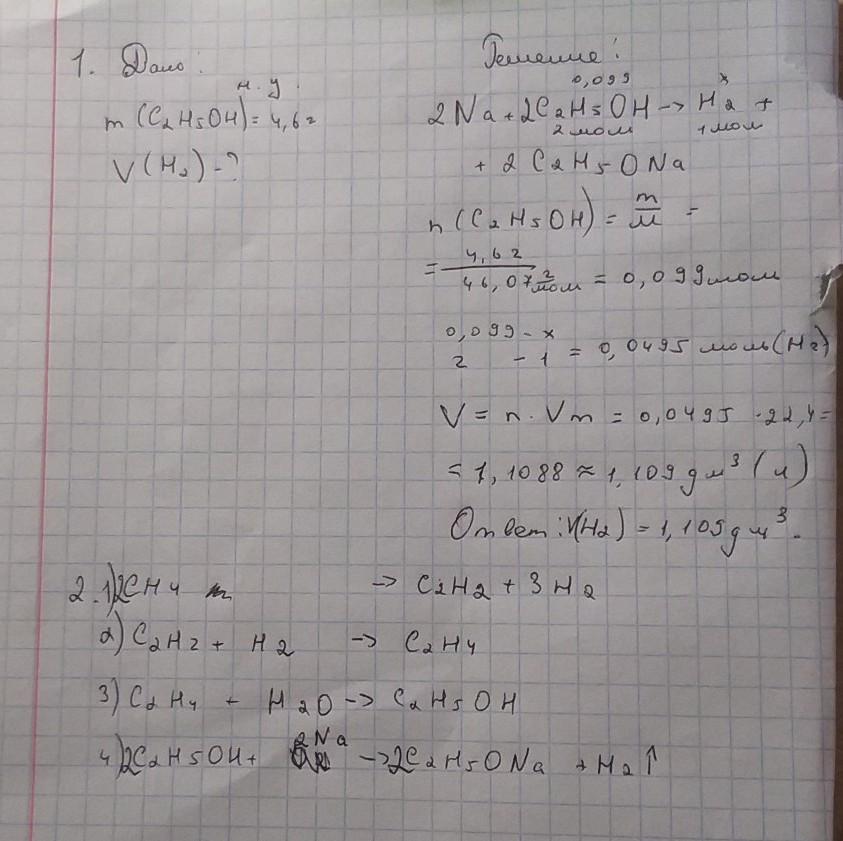 1. Дано:
н.у.
m(C2H5OH) = 4,6г
V(H2) - ?
Решение:
0,099 x
2Na + 2C2H5OH -> H2 +
2 моль 1 моль
+ 2C2H5ONa
n(C2H5OH) = m/M =
= 4,6г / 46,07 г/моль = 0,099 моль
0,099 - x
2 - 1 = 0,0495 моль (H2)
V = n · Vm = 0,0495 · 22,4 =
= 1,1088 ≈ 1,109 дм³ (л)
Ответ: V(H2) = 1,109 дм³.
2. 1) 2CH4 -> C2H2 + 3H2
2) C2H2 + H2 -> C2H4
3) C2H4 + H2O -> C2H5OH
4) 2C2H5OH + 2Na -> 2C2H5ONa + H2↑